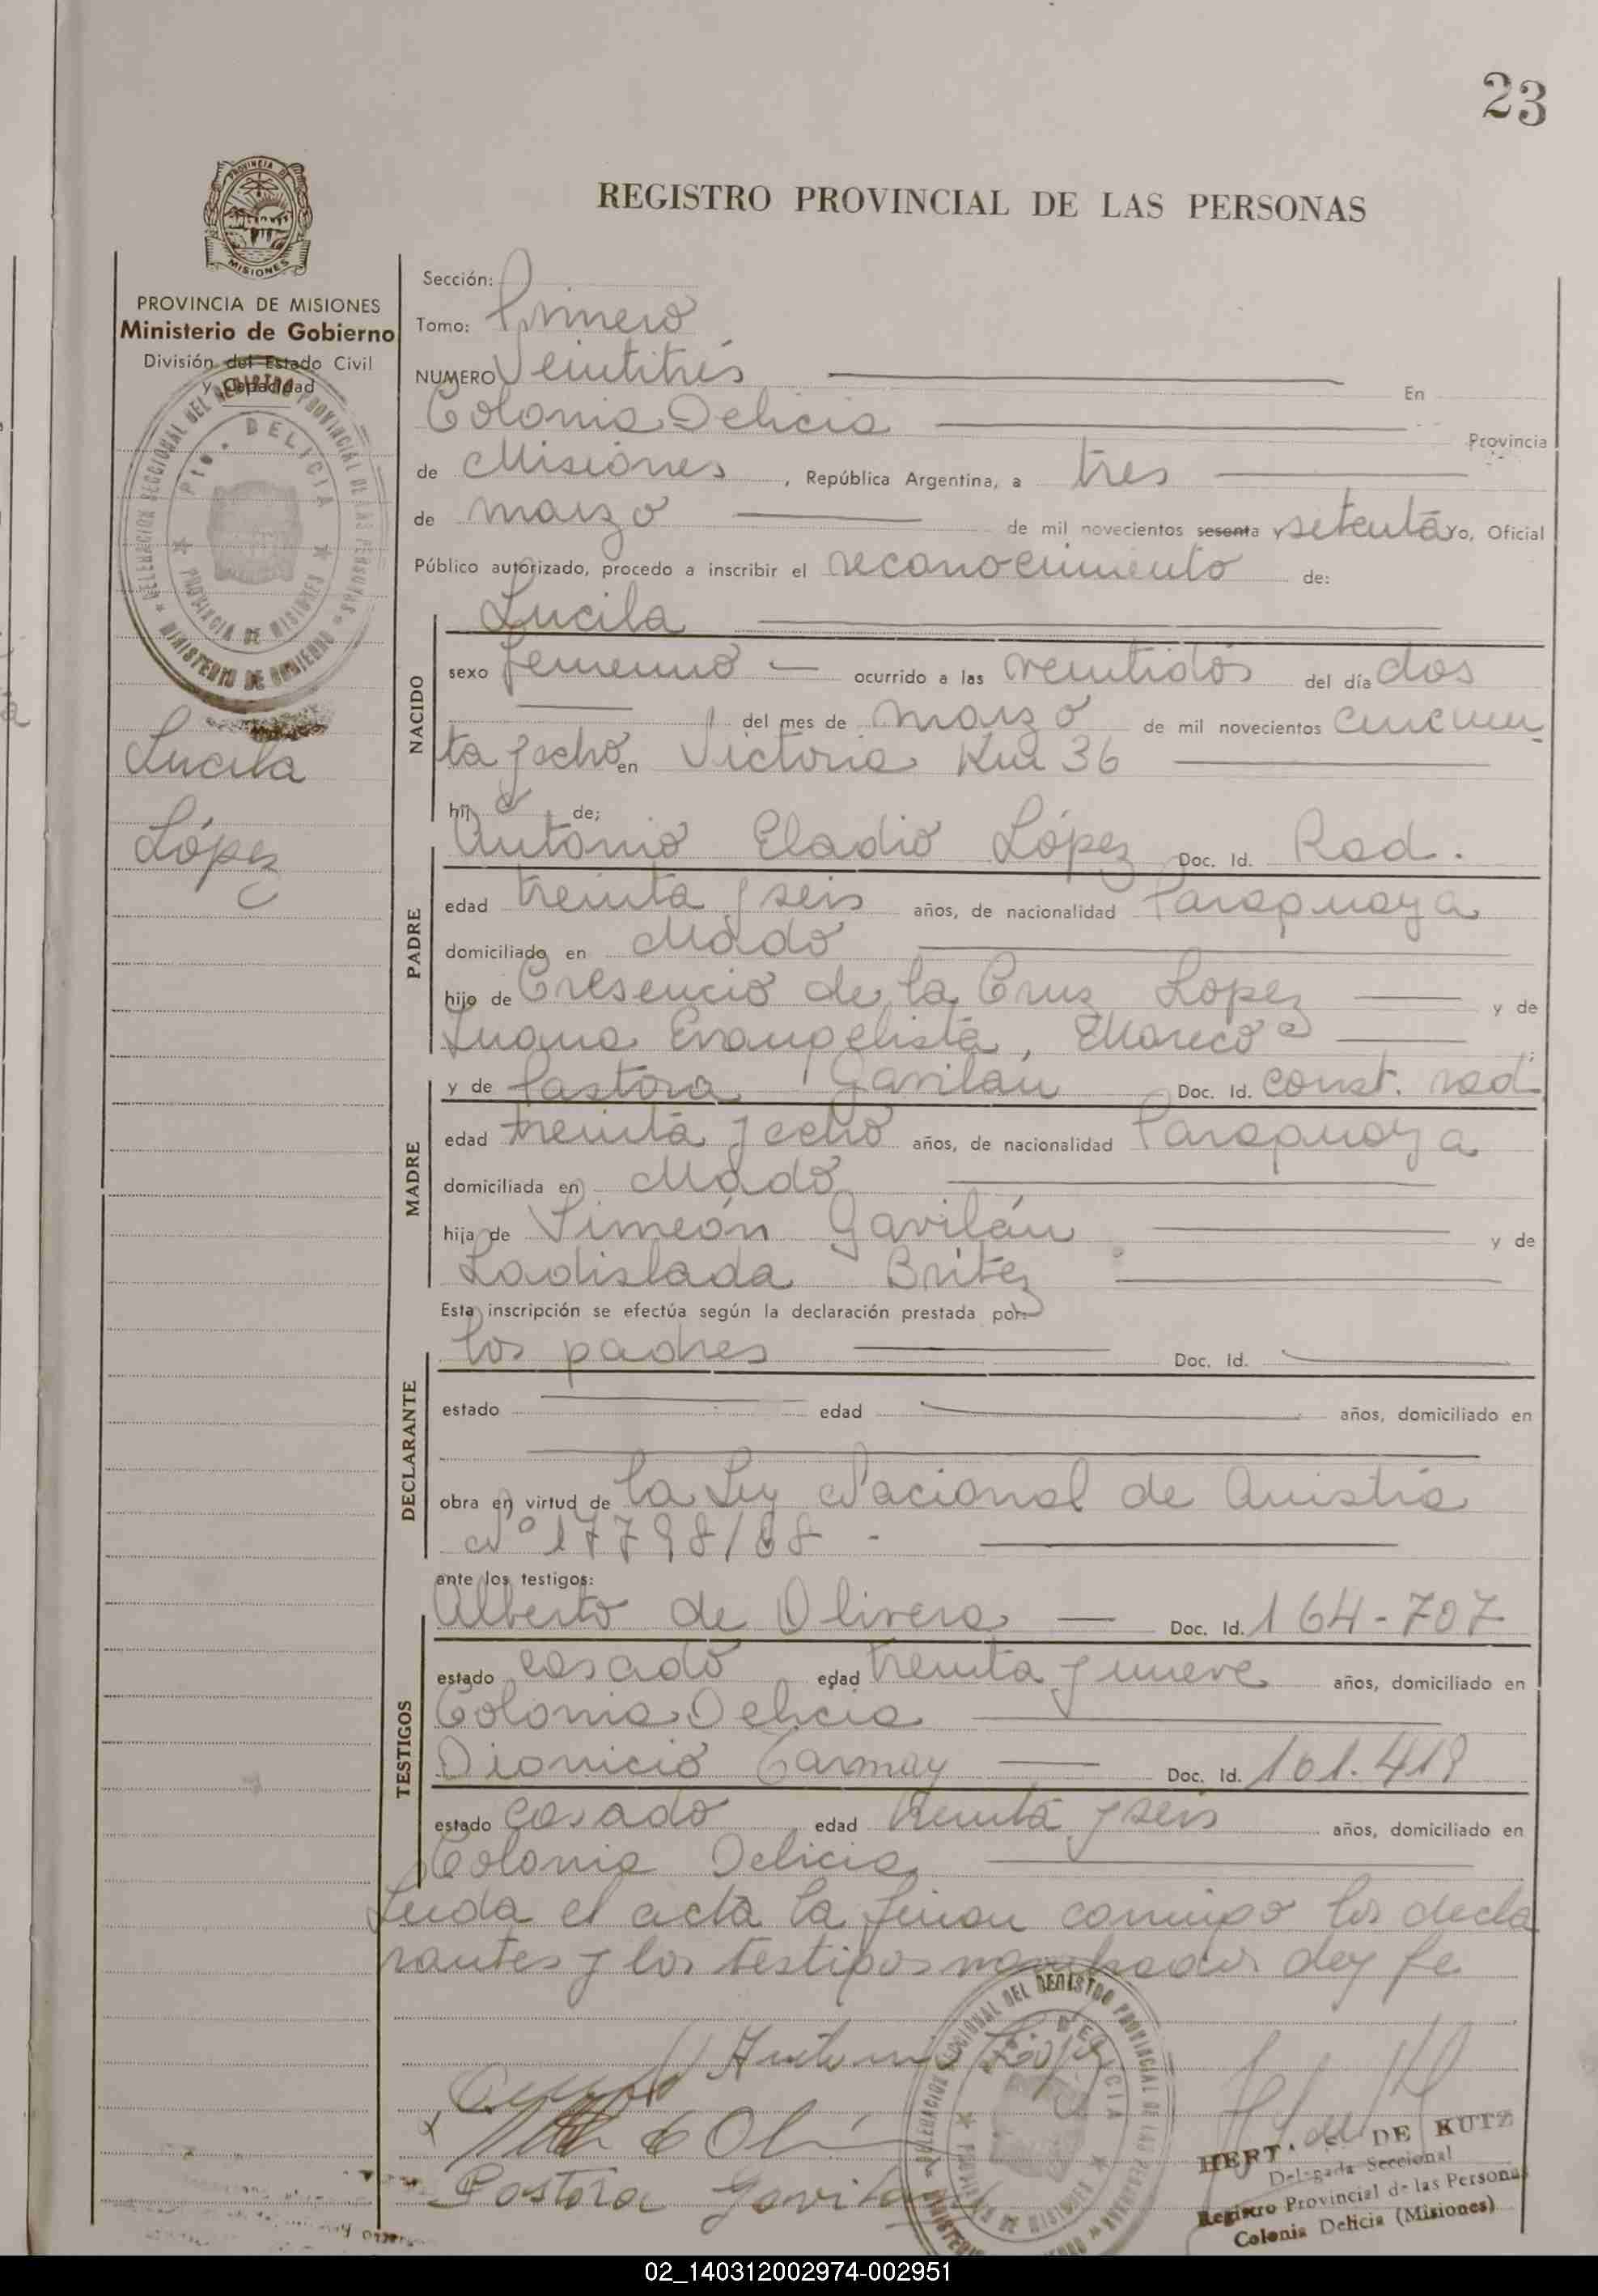 23
REGISTRO PROVINCIAL DE LAS PERSONAS
PROVINCIA DE MISIONES
Ministerio de Gobierno
División del Estado Civil
y Capacidad
Lucila
López
Sección:
Tomo: Primero
NUMERO Veintitrés En
Colonia Delicia Provincia
de Misiones, República Argentina, a tres
de marzo de mil novecientos sesenta y setenta yo, Oficial
Público autorizado, procedo a inscribir el reconocimiento de:
Lucila
NACIDO
sexo femenino ocurrido a las veintidós del día dos
del mes de marzo de mil novecientos cincuen
ta y ocho en Victoria Km 36
hij a de;
Antonio Eladio López Doc. Id. Rad.
PADRE
edad treinta y seis años, de nacionalidad Paraguaya
domiciliado en Mado
hijo de Cresencio de la Cruz Lopez y de
Juana Evangelista, Mareco
y de Pastora Gavilan Doc. Id. const. rad
MADRE
edad treinta y ocho años, de nacionalidad Paraguaya
domiciliada en Mado
hija de Simeón Gavilán y de
Ladislada Britez
Esta inscripción se efectúa según la declaración prestada por:
los padres Doc. Id.
DECLARANTE
estado edad años, domiciliado en
obra en virtud de la Ley Nacional de Amistia
Nº 17798/68 -
ante los testigos:
Alberto de Olivera Doc. Id. 164-707
TESTIGOS
estado casado edad treinta y nueve años, domiciliado en
Colonia Delicia
Dionicio Doc. Id. 101.419
estado casado edad treinta y seis años, domiciliado en
Colonia Delicia
Leida el acta la firman conmigo los decla
rantes y los testigos doy fe
Antonio López
Pastora Gavilan
DE KUTZ
Delegada Seccional
Registro Provincial de las Personas
Colonia Delicia (Misiones)
02_140312002974-002951